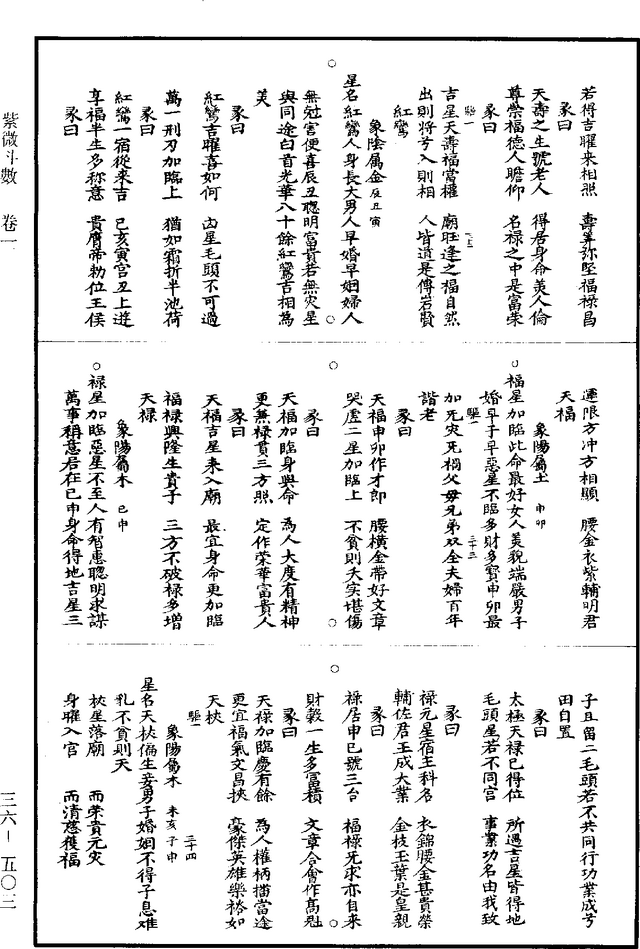 紫微斗數 卷一
三六－五〇三
若得吉曜来相照 壽筭弥堅福祿昌
彖曰
天壽之生號老人 得居身命美人倫
尊崇福德人瞻仰 名祿之中是富荣
彖曰
驅一 二上
吉星天壽福當權 廟旺逢之福自然
出則將兮入則相 人皆道是傅岩賢
紅鸞
象陰属金 辰丑寅
星名紅鸞人身長大男人早婚早姻婦人
無尅害便喜辰丑聰明富貴若無灾星
與同途白首光華八十餘紅鸞吉相為
美
彖曰
紅鸞吉曜喜如何 凶星毛頭不可過
萬一刑刃加臨上 猶如霜折半池荷
彖曰
紅鸞一宿從来吉 巳亥寅宫丑上逰
享福半生多称意 貴膺帝勅位王侯
彖曰
運限方冲方相顯 腰金衣紫輔明君
天福
象陽属土 申卯
福星加臨此命最好女人美貌端嚴男子
婚早子早惡星不臨多財多寳申卯最
驅一 三十三
加死灾死禍父毋兄弟双全夫婦百年
諧老
彖曰
天福申卯作才郎 腰横金帶好文章
哭虛二星加臨上 不貧則夭实堪傷
彖曰
天福加臨身與命 為人大度有精神
更無祿貴三方照 定作荣華富貴人
彖曰
天福吉星来入廟 最宜身命更加臨
福祿興隆生貴子 三方不破祿多增
天禄
象陽屬木 巳申
禄星加臨惡星不至人有智惠聰明求謀
萬事稱意居在巳申身命得地吉星三
子且留二毛頭若不共同行功業成兮
田自置
彖曰
太極天禄已得位 所遇吉星皆得地
毛頭星若不同宫 事業功名由我致
彖曰
祿元星宿主科名 衣錦腰金甚貴榮
輔佐君王成大業 金枝玉葉是皇親
彖曰
祿居申巳號三台 福禄无求亦自来
財穀一生多富積 文章合會作髙魁
彖曰
天禄加臨慶有餘 為人權柄描當途
更宜福氣文昌挾 豪傑英雄樂裕如
天杖
驅一 三十四
象陽属木 未亥子申
星名天杖偏生妾男子婚姻不得子息难
孔不貧則夭
杖星落廟 而荣貴元灾
身曜入宫 而清慈獲福